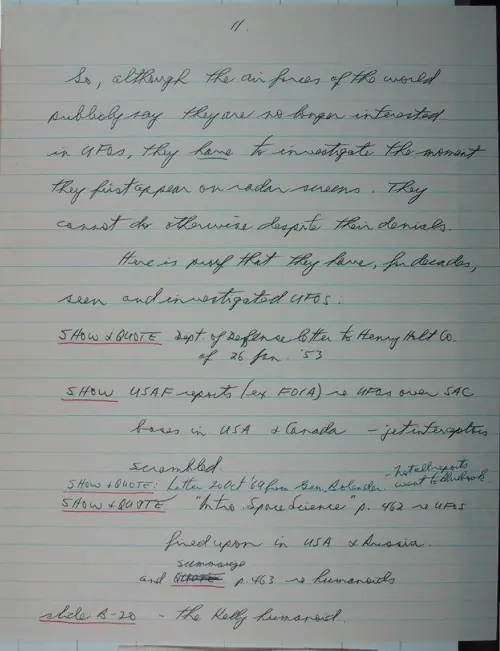 11.
So, although the air forces of the world
publicly say they are no longer interested
in UFOs, they have to investigate the moment
they first appear on radar screens. They
cannot do otherwise despite their denials.
Here is proof that they have, for decades,
seen and investigated UFOs:
SHOW & QUOTE Dept. of Defense letter to Henry Holt Co.
of 26 Jan. '53
SHOW USAF reports (ex FOIA) re UFOs over SAC
bases in USA & Canada - jet interceptors
scrambled.
- not all reports
SHOW & QUOTE: Letter 20 Oct '69 from Gen. Bolender went to Bluebook
SHOW & QUOTE "Intro. Space Science" p. 462 re UFOs
fired upon in USA & Russia.
summarize
and QUOTE p. 463 re humanoids
slide B-20 - the Kelly humanoid.